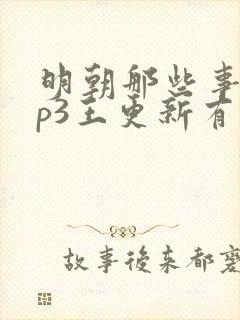 明朝那些事
p3王更新有
故事後来都